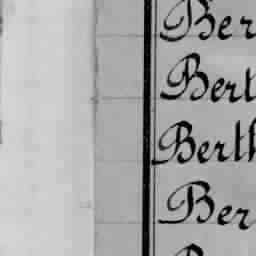 Ber
Bert
Berth
Ber